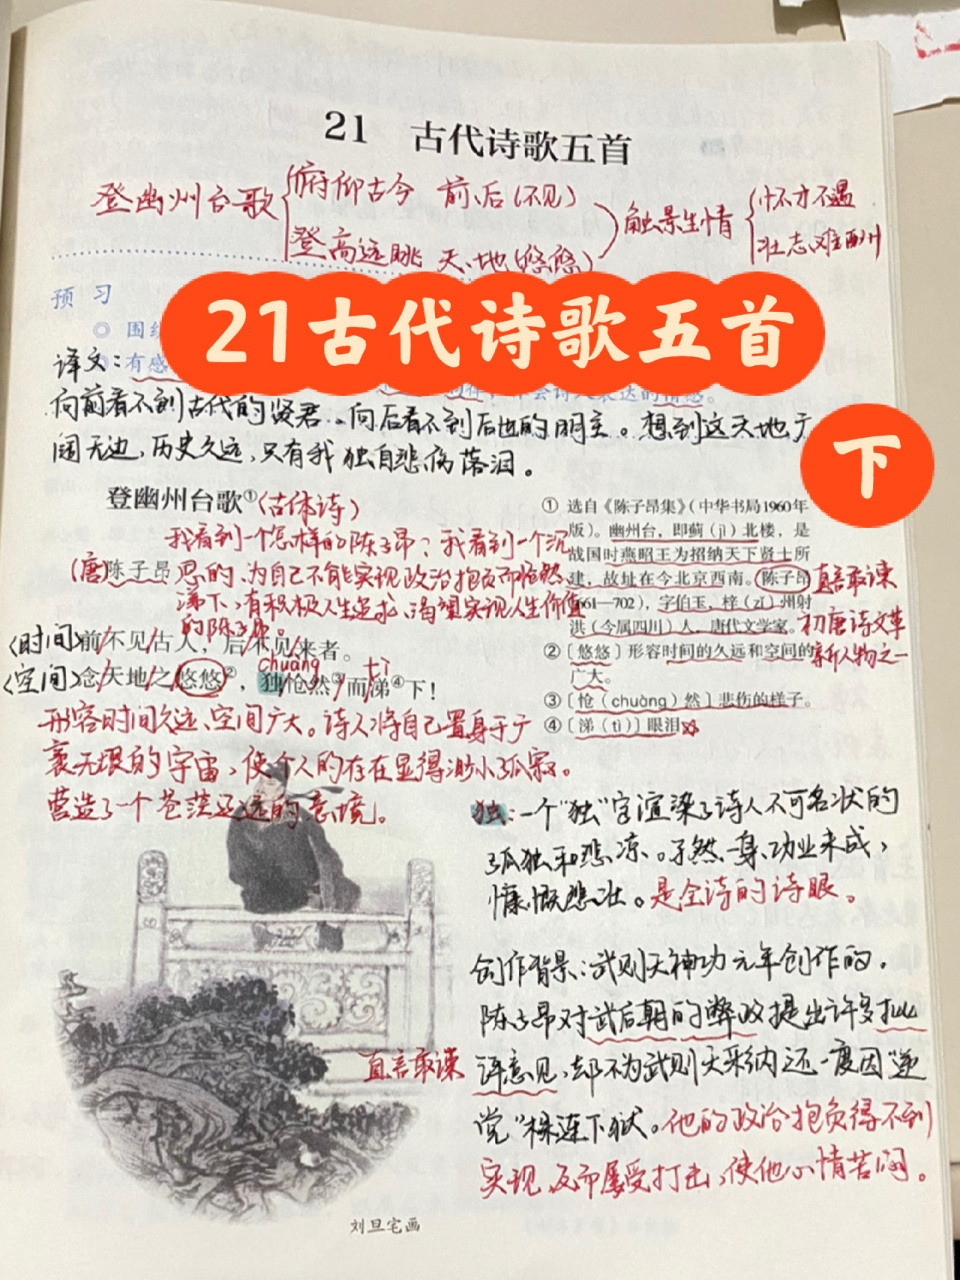 21 古代诗歌五首
登幽州台歌 俯仰古今 前、后(不见) 触景生情 怀才不遇
登高远眺 天、地(悠悠) 壮志难酬
预 习
21古代诗歌五首
下
◎ 围
译文：有感
会诗人表达的情感。
向前看不到古代的贤君，向后看不到后世的明主。想到这天地广
阔无边，历史久远，只有我独自悲伤落泪。
登幽州台歌①(古体诗)
我看到一个怎样的陈子昂？我看到一个沉
(唐)陈子昂 思的、为自己不能实现政治抱负而怆然
涕下、有积极人生追求、渴望实现人生价值
的陈子昂。
〈时间〉前/不见/古人，后/不见/来者。
chuàng tì
〈空间〉念/天地/之/悠悠②，独/怆然③/而/涕④下！
形容时间久远、空间广大。诗人将自己置身于广
袤无垠的宇宙，使个人的存在显得渺小孤寂。
营造了一个苍茫辽远的意境。
① 选自《陈子昂集》(中华书局1960年
版)。幽州台，即蓟(jì)北楼，是
战国时燕昭王为招纳天下贤士所
建，故址在今北京西南。陈子昂 直言敢谏
(661—702)，字伯玉，梓(zǐ)州射
洪(今属四川)人，唐代文学家。初唐诗文革
② 〔悠悠〕形容时间的久远和空间的 新人物之一
广大。
③ 〔怆(chuàng)然〕悲伤的样子。
④ 〔涕(tì)〕眼泪
独：一个“独”字渲染了诗人不可名状的
孤独和悲凉。孑然一身、功业未成，
慷慨悲壮。是全诗的诗眼。
创作背景：武则天神功元年创作的。
陈子昂对武后朝的弊政提出许多批
直言敢谏
评意见，却不为武则天采纳，还一度因“逆
党”株连下狱。他的政治抱负得不到
实现，反而屡受打击，使他心情苦闷。
刘旦宅画